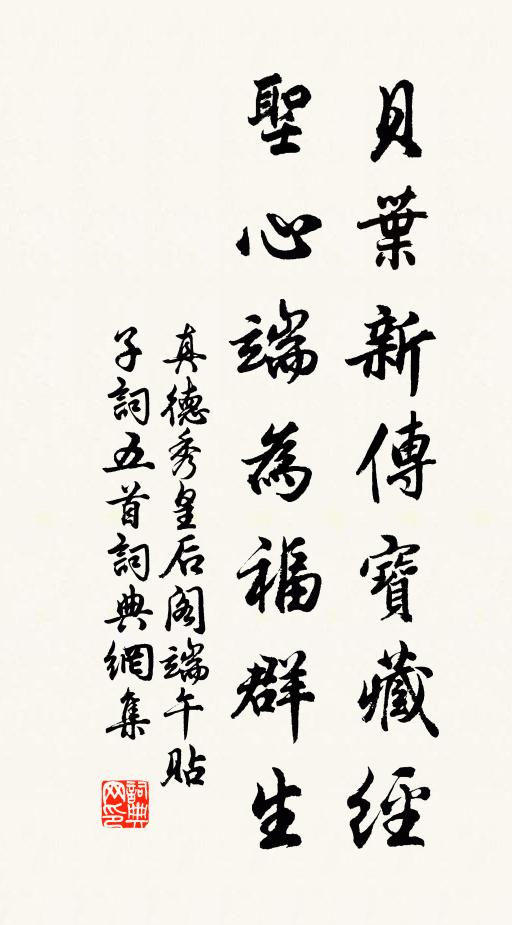 貝葉新傳寶藏經
聖心端為福群生
真德秀皇后阁端午貼
子詞五首詞典網集
詞典
网印